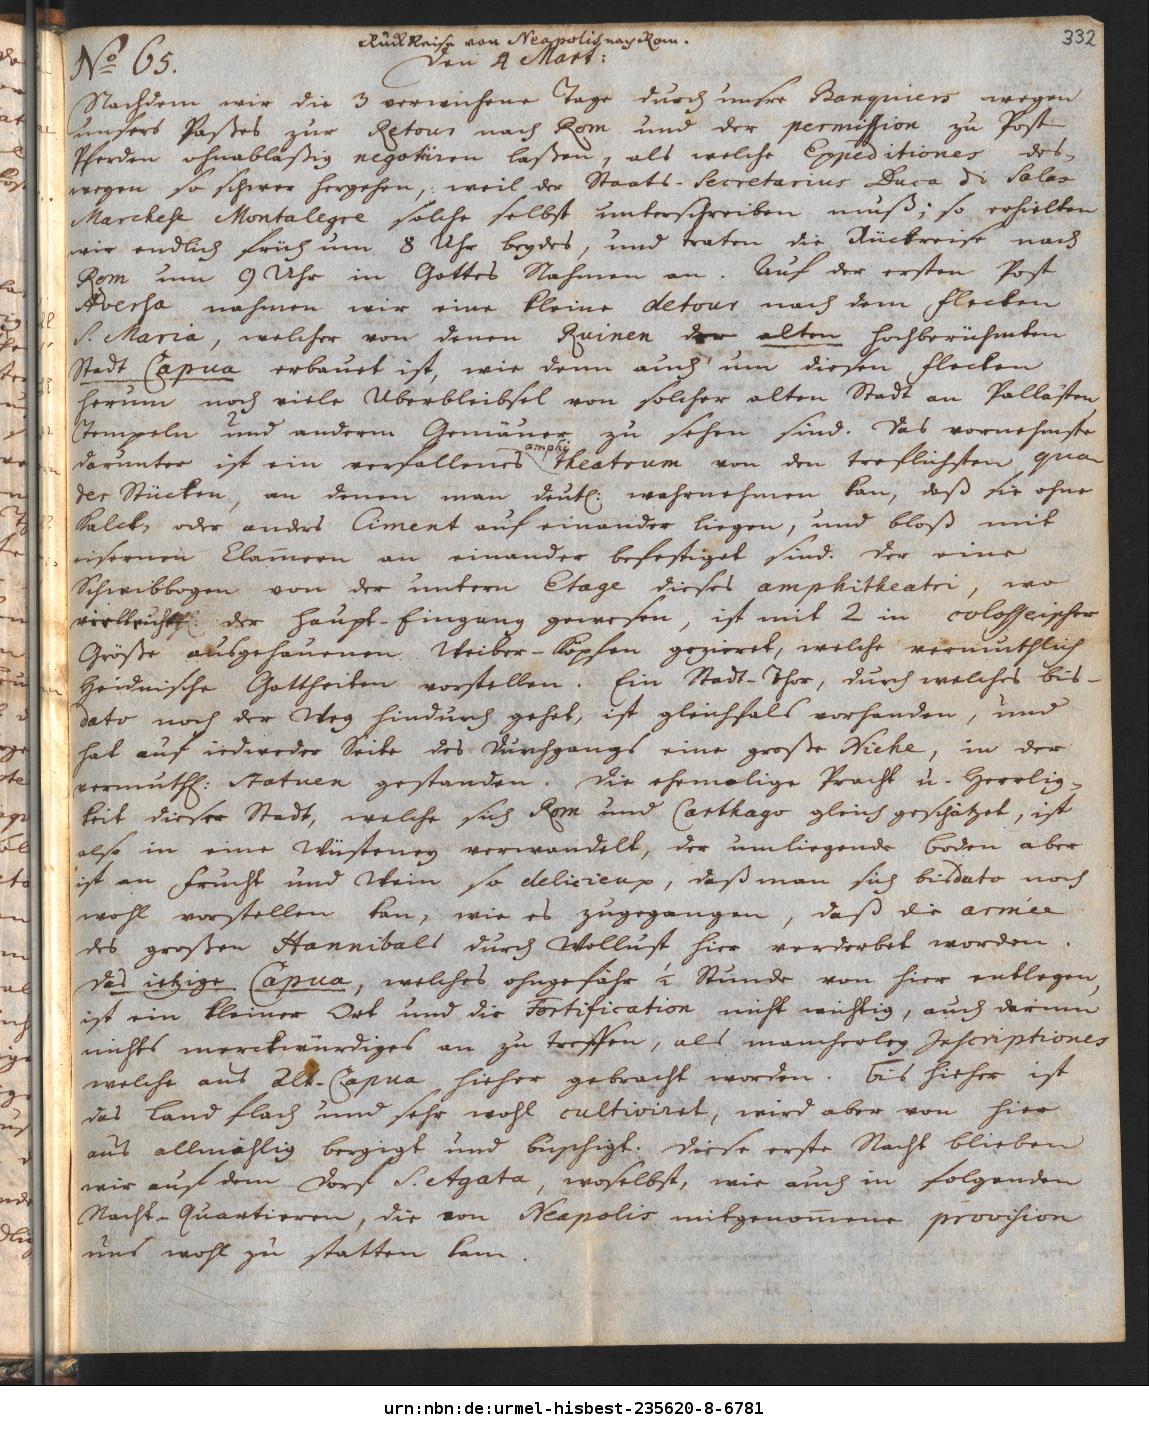 332
Rück Reise von Neapolis nach Rom.
No 65. Den 4 Mart:
Nachdem wir die 3 verwichene Tage durch unsre Banquiers wegen
unsers Paßes zur Retour nach Rom und der permission zu Post
Pferden ohnabläßig negotiiren laßen, als welche Expeditiones des-
wegen so schwer hergehen, weil der Staats-Secretarius Duca di Salas
Marchese Montalegre solche selbst unterschreiben muß; so erhielten
wir endlich früh um 8 Uhr beydes, und traten die Rückreise nach
Rom um 9 Uhr in Gottes Nahmen an. Auf der ersten Post
Aversa nahmen wir eine kleine detour nach dem Flecken
S. Maria, welcher von denen Ruinen der alten hochberühmten
Stadt Capua erbauet ist, wie denn auch um diesen Flecken
herum noch viele Uberbleibsel von solcher alten Stadt an Pallästen
Tempeln und anderm Gemäuer zu sehen sind. Das vornehmste
darunter ist ein verfallenes amphitheatrum von den treflichsten qua-
der Stücken, an denen man deutl: wahrnehmen kan, daß sie ohne
Kalck, oder anders Ciment auf einander liegen, und bloß mit
eisernen Clam̅ern an einander befestiget sind. Der eine
Schwibbogen von der untern Etage dieses amphitheatri, wo
vielleicht der Haupt-Eingang gewesen, ist mit 2 in colosseischer
Größe ausgehauenen Weiber-Köpfen gezieret, welche vermuthlich
Heidnische Gottheiten vorstellen. Ein Stadt-Thor, durch welches bis-
dato noch der Weg hindurch gehet, ist gleichfals vorhanden, und
hat auf iedweder Seite des Durchgangs eine große Niche, in der
vermuthl: Statuen gestanden. Die ehemalige Pracht u. Herrlig-
keit dieser Stadt, welche sich Rom und Carthago gleich geschätzet, ist
also in eine Wüsteney verwandelt, der umliegende Boden aber
ist an Frucht und Wein so delicieux, daß man sich bisdato noch
wohl vorstellen kan, wie es zugegangen, daß die armée
des großen Hannibals durch Wollust hier verderbet worden.
Das ietzige Capua, welches ohngefähr ½ Stunde von hier entlegen,
ist ein kleiner Ort und die Fortification nicht wichtig, auch darinn
nichts merckwürdiges an zu treffen, als mancherley Inscriptiones
welche aus Alt-Capua hieher gebracht worden. Bis hieher ist
das Land flach und sehr wohl cultiviret, wird aber von hier
aus allmählig bergigt und buschigt. Diese erste Nacht blieben
wir auf dem Dorf S. Agata, woselbst, wie auch in folgenden
Nacht-Quartieren, die von Neapolis mitgenom̅ene provision
uns wohl zu statten kam.
urn:nbn:de:urmel-hisbest-235620-8-6781